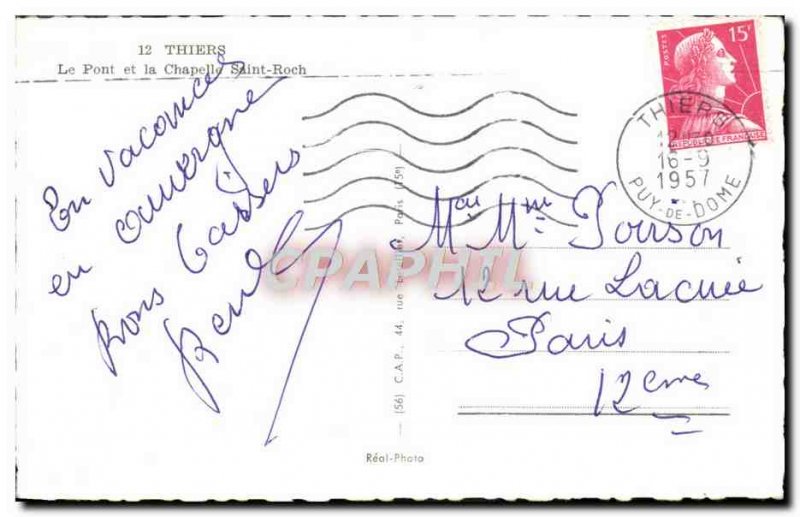 12 THIERS
Le Pont et la Chapelle Saint-Roch
En vacances
en auvergne
Bons baisers
15F
POSTES
REPUBLIQUE FRANÇAISE
THIERS
16-9
1957
PUY-DE-DOME
Mr Mme Poirson
12 rue Lacuée
Paris
12eme
(56) C.A.P., 44, rue Paris (15e)
Réal-Photo
CPAPHIL